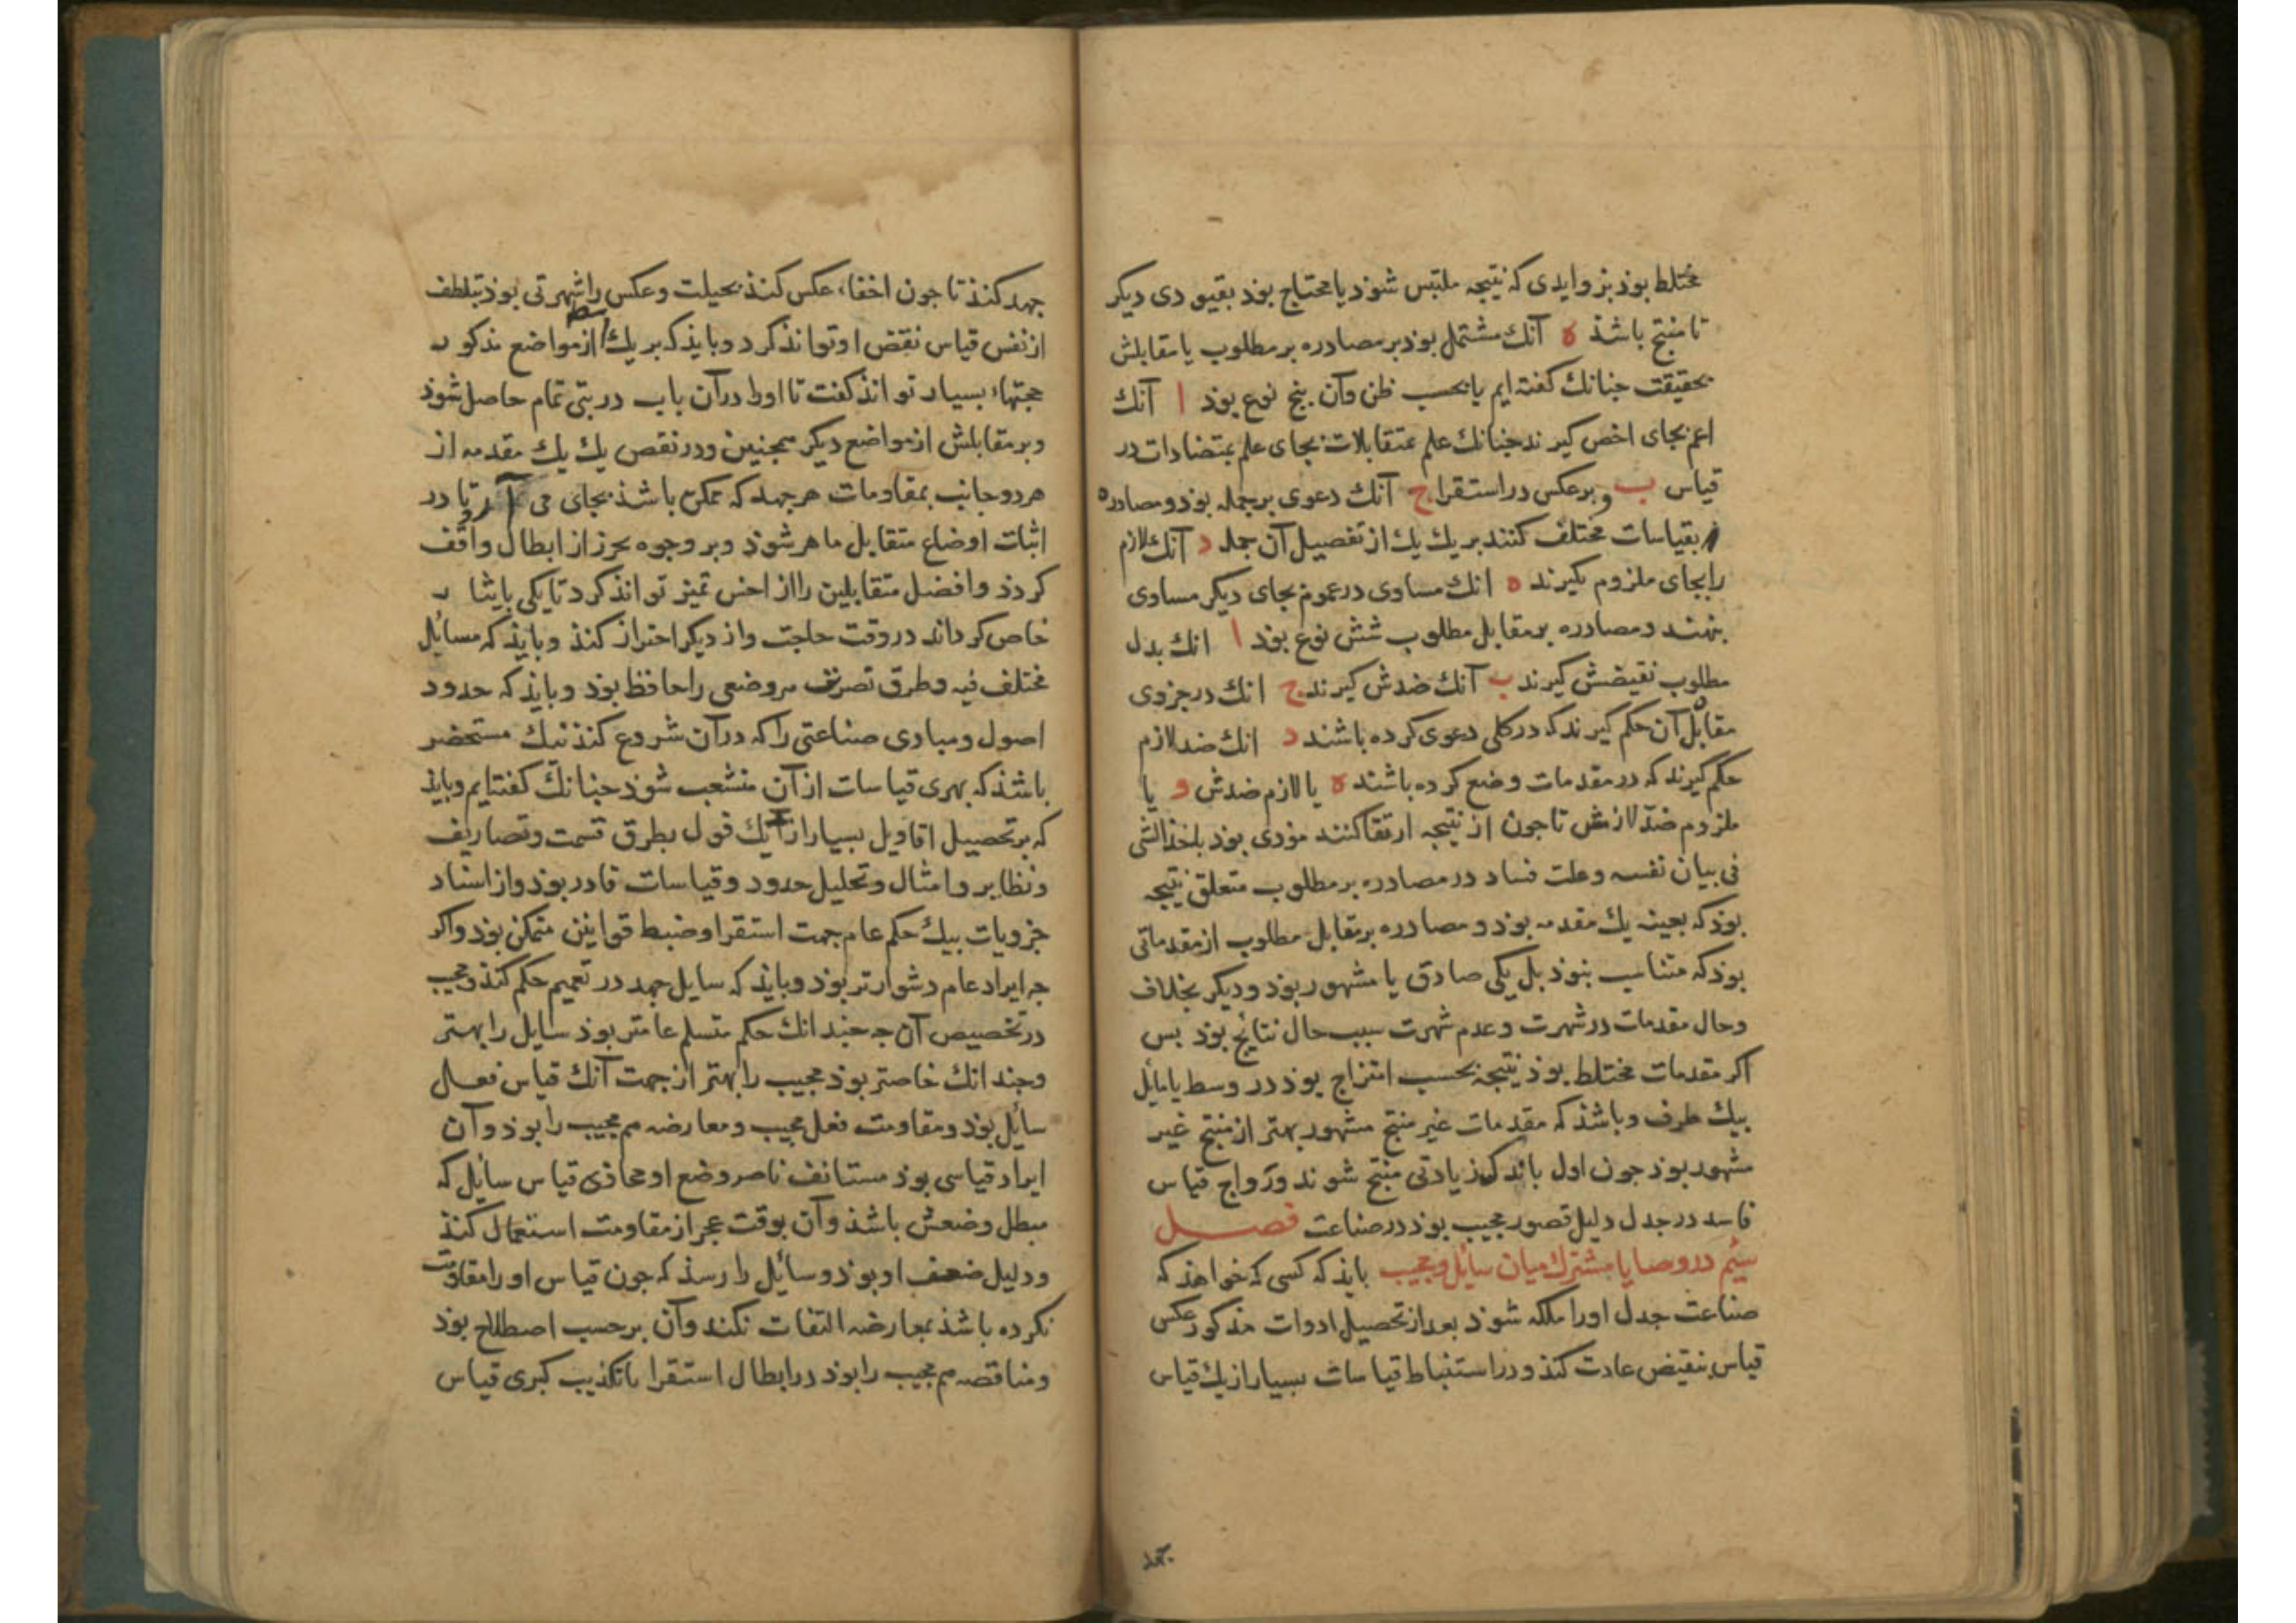 مختلط بوذ بزوایدی که نتیجه ملتبس شوذ یا محتاج بوذ بقیودی دیکر
تا منتج باشذ ه آنك مشتمل بوذ بر مصادره بر مطلوب یا مقابلش
بحقیقت جنانك کفته ایم یا بحسب ظن وآن بنج نوع بوذ ا آنك
اعم بجای اخص کیرند جنانك علم بمتقابلات بجای علم بمتضادات در
قیاس ب وبرعکس در استقرا ج آنك دعوی بر جمله بوذ و مصادره
بقیاسات مختلف کنند بر یك یك از تفصیل آن جمله د آنك لازم
را بجای ملزوم کیرند ه انك مساوی در عموم بجای دیکر مساوی
بنهند و مصادره بر مقابل مطلوب شش نوع بوذ ا انك بدل
مطلوب نقیضش کیرند ب آنك ضدش کیرند ج انك در جزوی
مقابل آن حکم کیرند که در کلی دعوی کرده باشند د انك ضد لازم
حکم کیرند که در مقدمات وضع کرده باشند ه یا لازم ضدش و یا
ملزوم ضد لازمش تا جون از نتیجه ارتقا کنند مؤدی بوذ باخذ الشی
فی بیان نفسه وعلت فساد در مصادره بر مطلوب متعلق نتیجه
بوذ که بعینه یك مقدمه بوذ و مصادره بر مقابل مطلوب از مقدماتی
بوذ که متناسب نبوذ بل یکی صادق یا مشهور بوذ و دیکر بخلاف
وحال مقدمات در شهرت وعدم شهرت سبب حال نتایج بوذ بس
اکر مقدمات مختلط بوذ نتیجه بحسب امتزاج بوذ در وسط یا مایل
بیك طرف وباشذ که مقدمات غیر منتج مشهور بهتر از منتج غیر
مشهور بوذ جون اول باندك زیادتی منتج شوند ورواج قیاس
فاسد در جدل دلیل قصور مجیب بوذ در صناعت فصل
سیم در وصایا مشترك میان سایل ومجیب بایذ که کسی که خواهذ که
صناعت جدل اورا ملکه شوذ بعد از تحصیل ادوات مذکور عکس
قیاس بنقیض عادت کنذ و در استنباط قیاسات بسیار از یك قیاس
جهد کنذ تا جون اخفاء عکس کنذ بحیلت وعکس را شهرتی بوذ بتلطف
از نفس قیاس نقض او تواند کرد وبایذ که بر یك از مواضع مذکور
حجتهاء بسیار تواند کفت تا اورا در آن باب دربتی تمام حاصل شوذ
وبر مقابلش از مواضع دیکر همجنین ودر نقض یك یك مقدمه از
هر دو جانب بمقاومات هر جهد که ممکن باشذ بجای می آرد تا در
اثبات اوضاع متقابل ماهر شوذ وبر وجوه تحرز از ابطال واقف
کردذ وافضل متقابلین را از اخس تمیز تواند کرد تا یکی بایثار
خاص کرداند در وقت حاجت واز دیکر احتراز کنذ وبایذ که مسائل
مختلف فیه وطرق تصرف هر وضعی را حافظ بوذ وبایذ که حدود
اصول ومبادی صناعتی را که در آن شروع کنذ نیك مستحضر
باشذ که بهری قیاسات از آن منشعب شوذ جنانك کفته ایم وبایذ
که بر تحصیل اقاویل بسیار از یك قول بطرق قسمت وتصاریف
ونظایر وامثال وتحلیل حدود وقیاسات قادر بوذ واز اسناد
جزویات بیك حکم عام جهت استقرا وضبط قوانین متمکن بوذ واکر
جه ایراد عام دشوارتر بوذ وبایذ که سایل جهد در تعمیم حکم کنذ ومجیب
در تخصیص آن جه جندانك حکم متسلم عامتر بوذ سایل را بهتر
وجندانك خاصتر بوذ مجیب را بهتر از جهت آنك قیاس فعل
سائل بوذ ومقاومت فعل مجیب ومعارضه هم مجیب را بوذ وآن
ایراد قیاسی بوذ مستانف ناصر وضع او محاذی قیاس سائل که
مبطل وضعش باشذ وآن بوقت عجز از مقاومت استعمال کنذ
ودلیل ضعف او بوذ وسائل را رسذ که جون قیاس اورا مقاومت
نکرده باشذ بمعارضه التفات نکند وآن بر حسب اصطلاح بوذ
ومناقضه هم مجیب را بوذ در ابطال استقرا یا تکذیب کبری قیاس